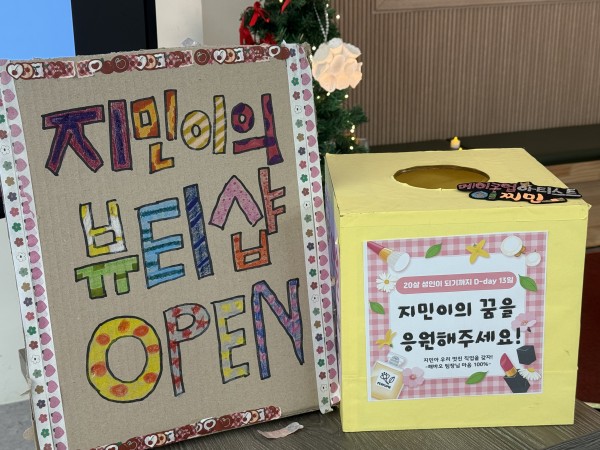 지민이의
뷰티샵
OPEN
메이크업 아티스트
이지민
20살 성인이 되기까지 D-day 13일
지민이의 꿈을
응원해주세요!
지민아 우리 멋진 직업을 갖자!
-해바오 팀장님 마음 100%-